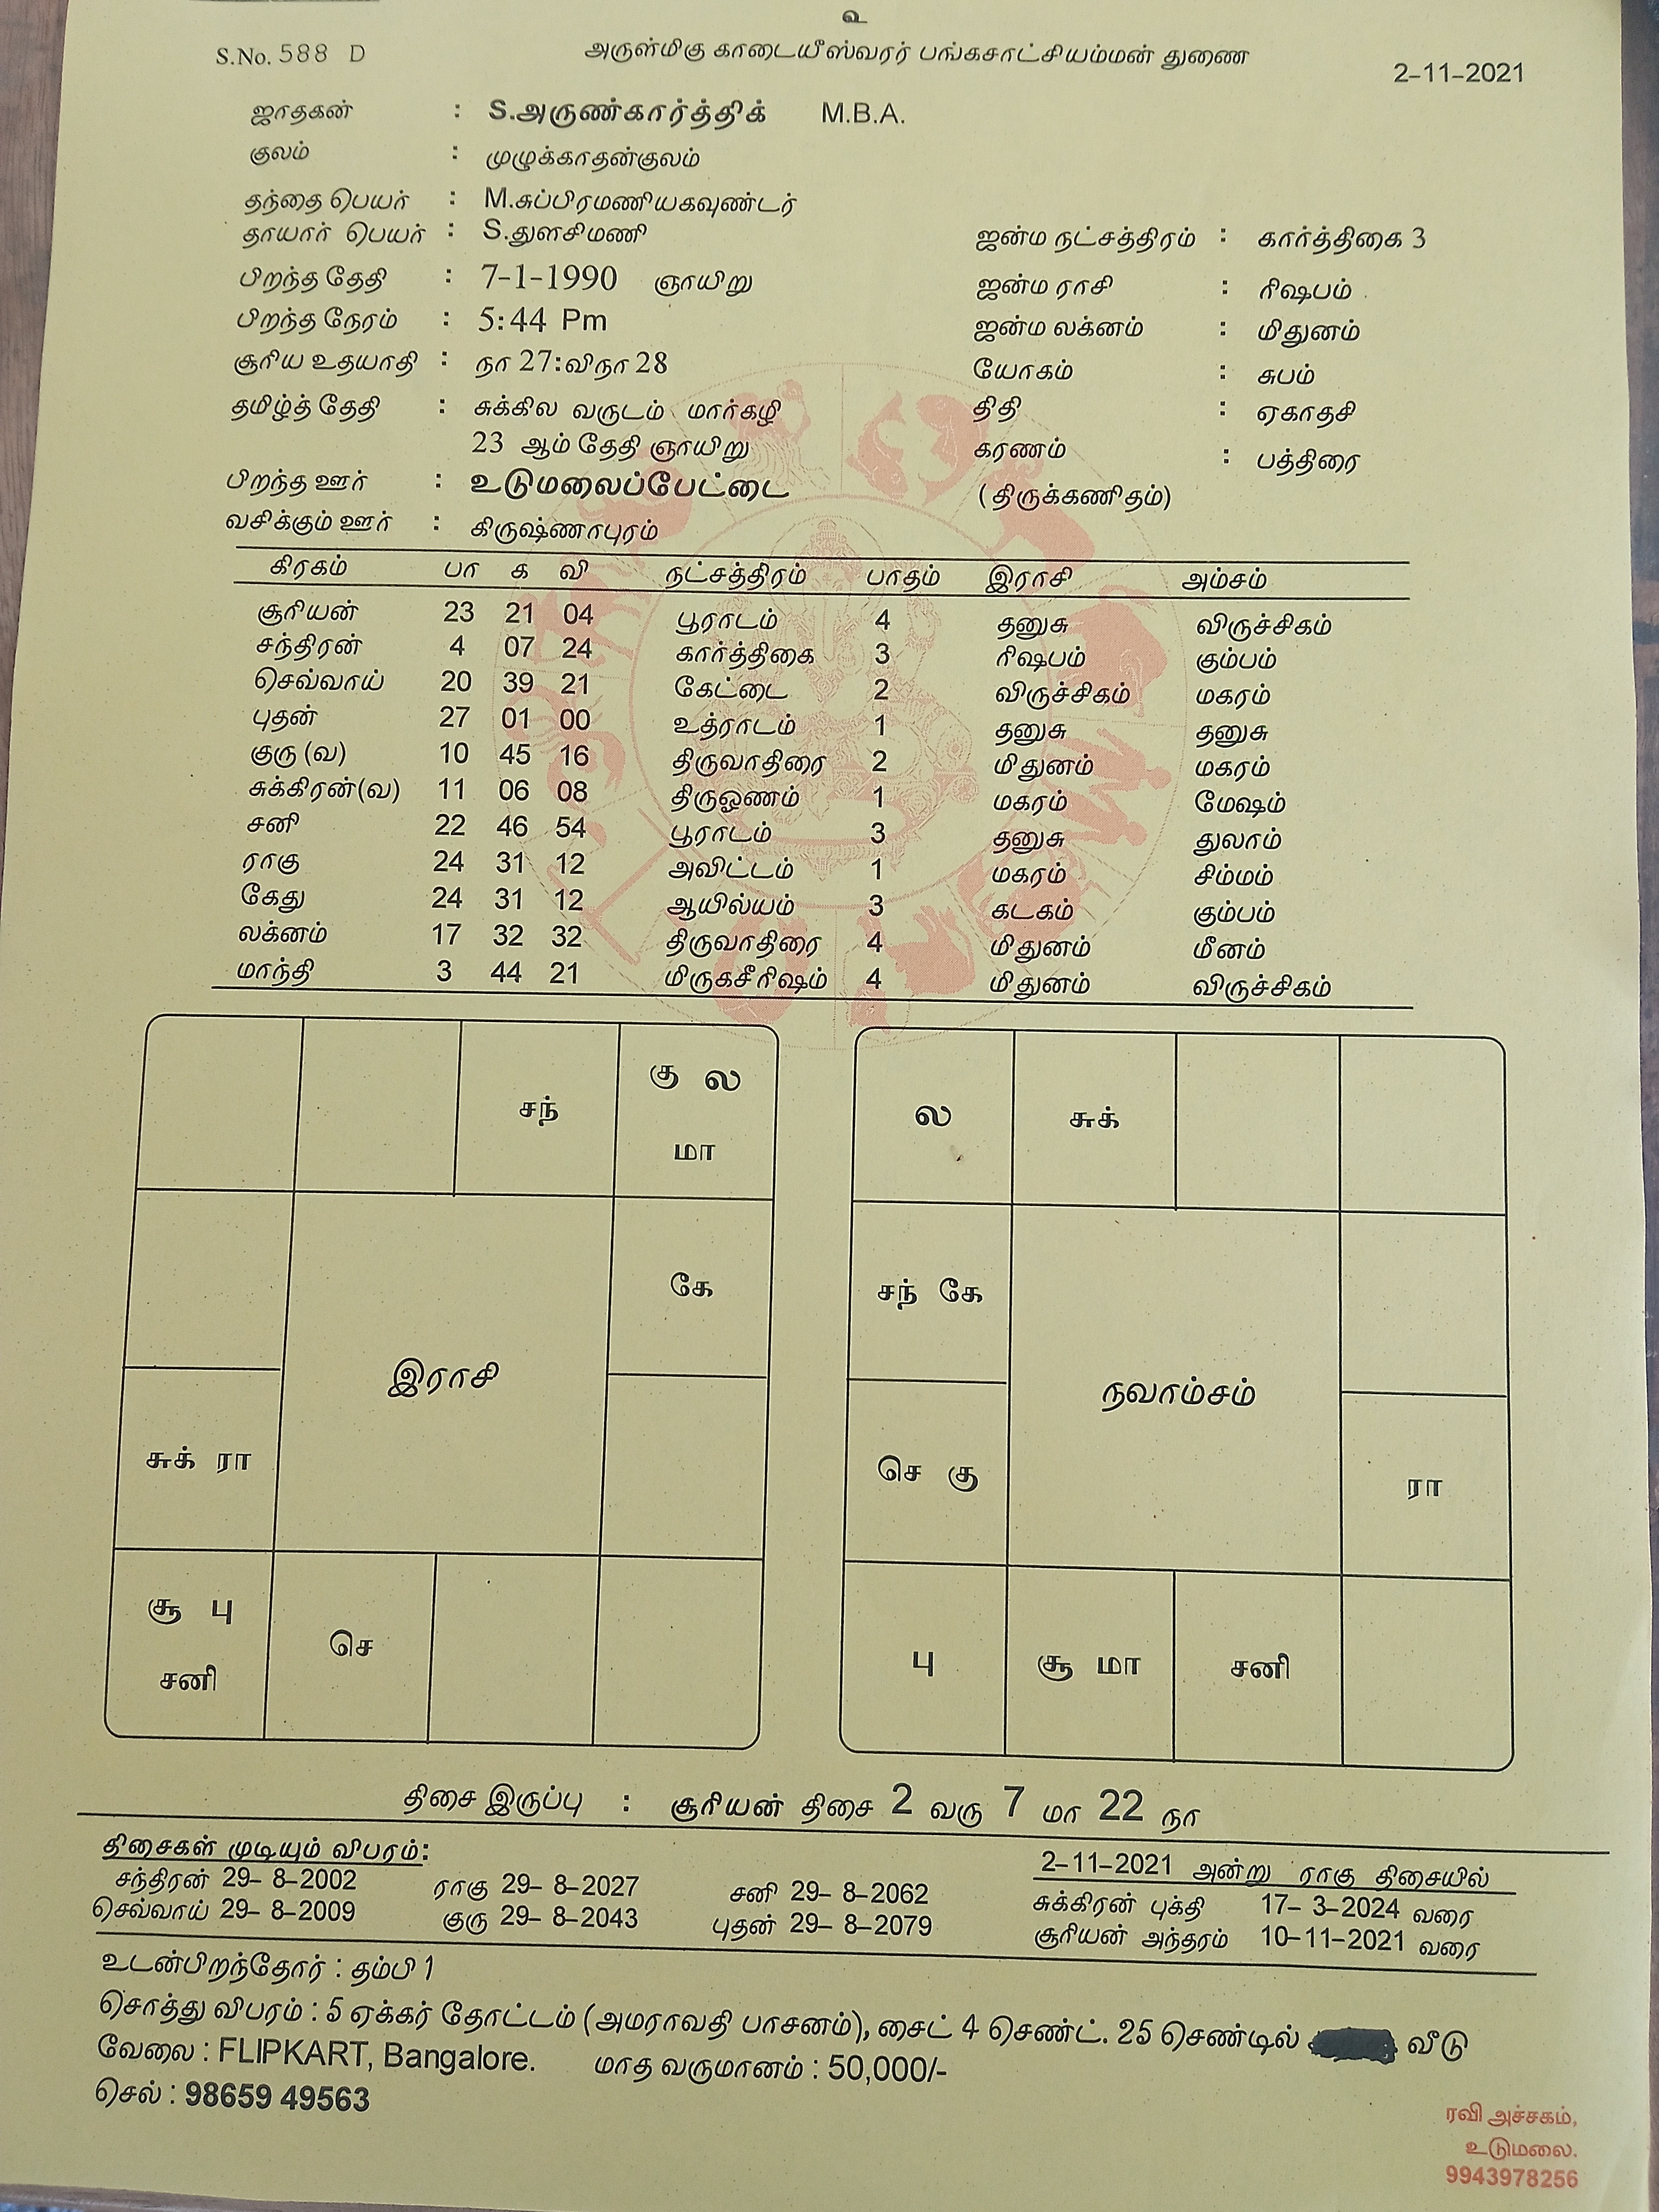 உ
S.No. 588 D
அருள்மிகு காடையீஸ்வரர் பங்கசாட்சியம்மன் துணை
2-11-2021
ஜாதகன் : S.அருண்கார்த்திக் M.B.A.
குலம் : முழுக்காதன்குலம்
தந்தை பெயர் : M.சுப்பிரமணியகவுண்டர்
தாயார் பெயர் : S.துளசிமணி ஜன்ம நட்சத்திரம் : கார்த்திகை 3
பிறந்த தேதி : 7-1-1990 ஞாயிறு ஜன்ம ராசி : ரிஷபம்
பிறந்த நேரம் : 5:44 Pm ஜன்ம லக்னம் : மிதுனம்
சூரிய உதயாதி : நா 27:விநா 28 யோகம் : சுபம்
தமிழ்த் தேதி : சுக்கில வருடம் மார்கழி திதி : ஏகாதசி
23 ஆம் தேதி ஞாயிறு கரணம் : பத்திரை
பிறந்த ஊர் : உடுமலைப்பேட்டை (திருக்கணிதம்)
வசிக்கும் ஊர் : கிருஷ்ணாபுரம்
கிரகம் பா க வி நட்சத்திரம் பாதம் இராசி அம்சம்
சூரியன் 23 21 04 பூராடம் 4 தனுசு விருச்சிகம்
சந்திரன் 4 07 24 கார்த்திகை 3 ரிஷபம் கும்பம்
செவ்வாய் 20 39 21 கேட்டை 2 விருச்சிகம் மகரம்
புதன் 27 01 00 உத்ராடம் 1 தனுசு தனுசு
குரு (வ) 10 45 16 திருவாதிரை 2 மிதுனம் மகரம்
சுக்கிரன்(வ) 11 06 08 திருஓணம் 1 மகரம் மேஷம்
சனி 22 46 54 பூராடம் 3 தனுசு துலாம்
ராகு 24 31 12 அவிட்டம் 1 மகரம் சிம்மம்
கேது 24 31 12 ஆயில்யம் 3 கடகம் கும்பம்
லக்னம் 17 32 32 திருவாதிரை 4 மிதுனம் மீனம்
மாந்தி 3 44 21 மிருகசீரிஷம் 4 மிதுனம் விருச்சிகம்
சந்
கு ல
மா
கே
இராசி
சுக் ரா
சூ பு
சனி
செ
ல
சுக்
சந் கே
நவாம்சம்
செ கு
ரா
பு
சூ மா
சனி
திசை இருப்பு : சூரியன் திசை 2 வரு 7 மா 22 நா
திசைகள் முடியும் விபரம்:
சந்திரன் 29- 8-2002 ராகு 29- 8-2027 சனி 29- 8-2062
செவ்வாய் 29- 8-2009 குரு 29- 8-2043 புதன் 29- 8-2079
2-11-2021 அன்று ராகு திசையில்
சுக்கிரன் புக்தி 17- 3-2024 வரை
சூரியன் அந்தரம் 10-11-2021 வரை
உடன்பிறந்தோர் : தம்பி 1
சொத்து விபரம் : 5 ஏக்கர் தோட்டம் (அமராவதி பாசனம்), சைட் 4 செண்ட். 25 செண்டில் வீடு
வேலை : FLIPKART, Bangalore. மாத வருமானம் : 50,000/-
செல் : 98659 49563
ரவி அச்சகம்,
உடுமலை.
9943978256